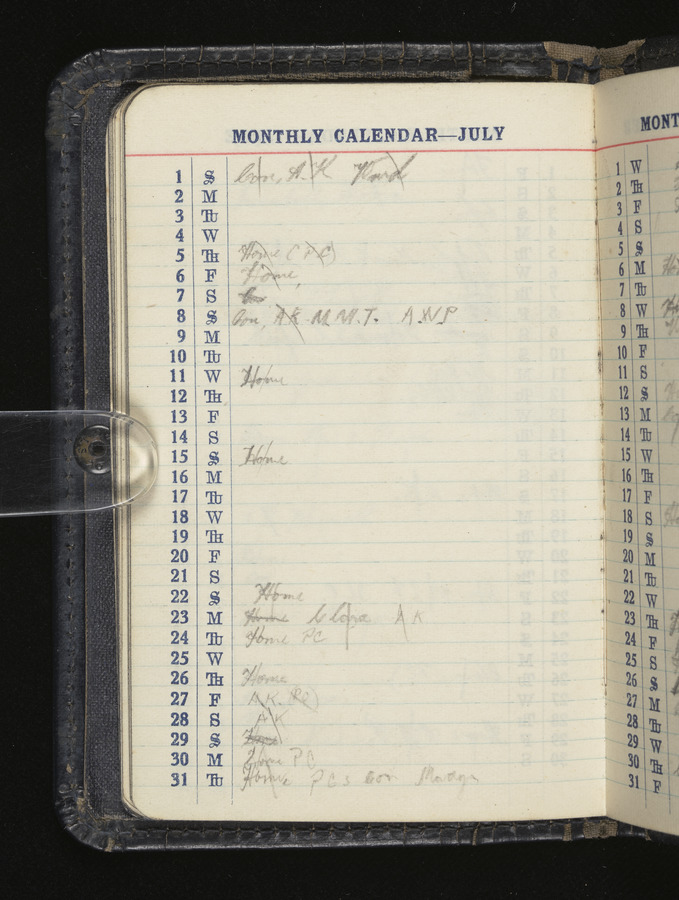 MONTHLY CALENDAR—JULY
1 S Con, A.K Ward
2 M
3 Tu
4 W
5 Th Home (PC)
6 F Home
7 S
8 S Con, AK M.M.T. A.W.P
9 M
10 Tu
11 W Home
12 Th
13 F
14 S
15 S Home
16 M
17 Tu
18 W
19 Th
20 F
21 S
22 S Home
23 M Home Clara AK
24 Tu Home PC
25 W
26 Th Home
27 F A.K. (PC)
28 S AK
29 S
30 M Home PC
31 Tu Home PCs Con
MONT
1 W
2 Th
3 F
4 S
5 S
6 M
7 Tu
8 W
9 Th
10 F
11 S
12 S
13 M
14 Tu
15 W
16 Th
17 F
18 S
19 S
20 M
21 Tu
22 W
23 Th
24 F
25 S
26 S
27 M
28 Tu
29 W
30 Th
31 F